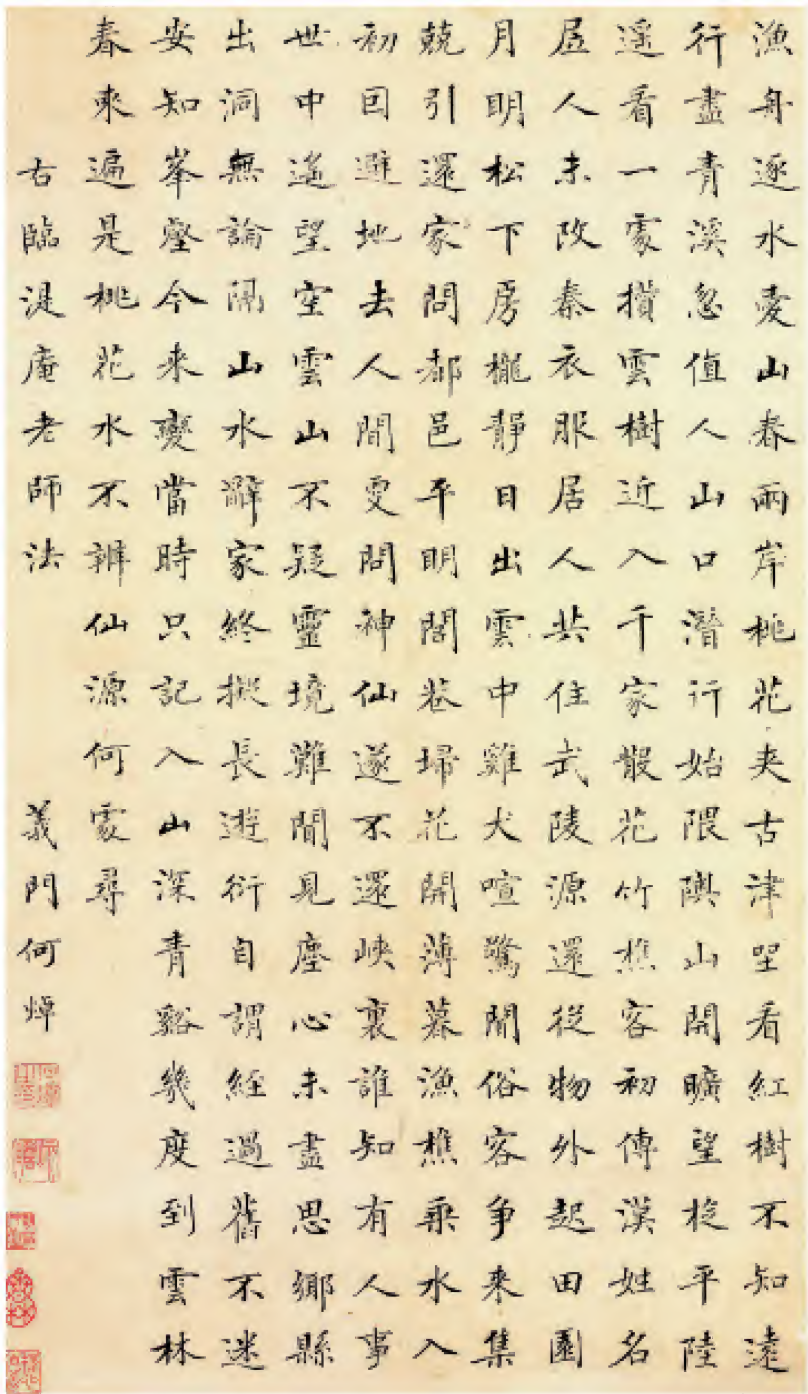 漁舟逐水愛山春兩岸桃花夾古津坐看紅樹不知遠
行盡青溪忽值人山口潛行始隈隩山開曠望旋平陸
遥看一處攢雲樹近入千家散花竹樵客初傳漢姓名
居人未改秦衣服居人共住武陵源還從物外起田園
月明松下房櫳靜日出雲中雞犬喧驚聞俗客爭來集
兢引還家問都邑平明閭巷埽花開薄暮漁樵乘水入
初因避地去人間更問神仙遂不還峽裏誰知有人事
世中遥望空雲山不疑靈境難聞見塵心未盡思鄉縣
出洞無論隔山水辭家終擬長遊衍自謂經過舊不迷
安知峯壑今來變當時只記入山深青谿幾度到雲林
春來遍是桃花水不辨仙源何處尋
右臨湜庵老師法
義門何焯